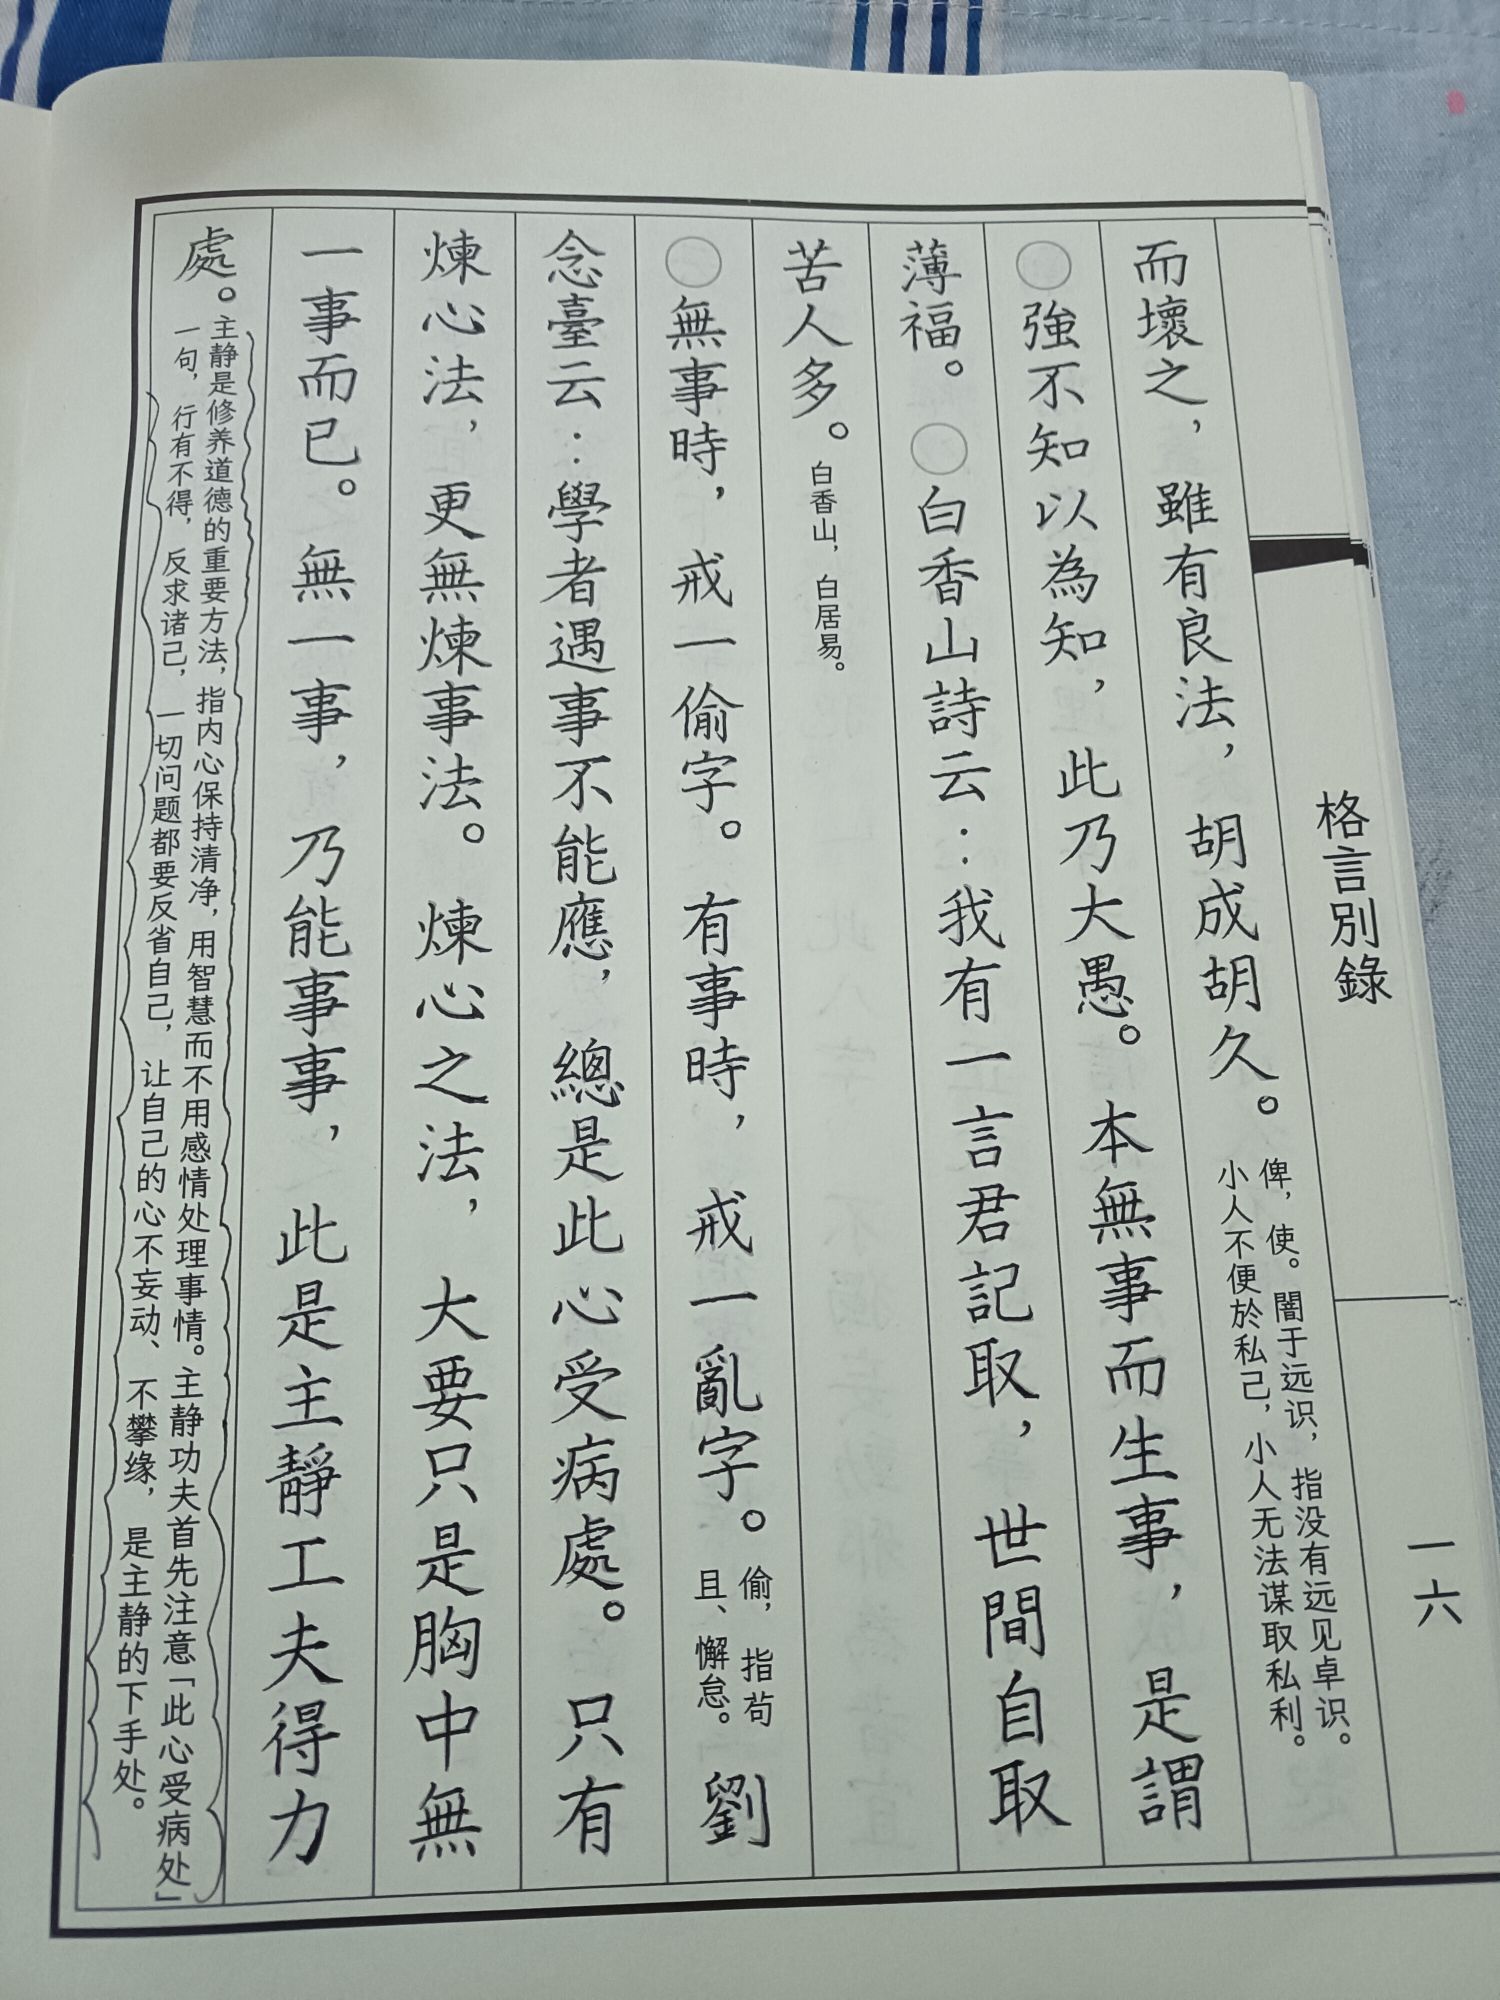 格言別錄
一六
而壞之，雖有良法，胡成胡久。
俾，使。闇于远识，指没有远见卓识。
小人不便於私己，小人无法谋取私利。
○強不知以為知，此乃大愚。本無事而生事，是謂
薄福。○白香山詩云：我有一言君記取，世間自取
苦人多。
白香山，白居易。
○無事時，戒一偷字。有事時，戒一亂字。
偷，指苟
且、懈怠。
劉
念臺云：學者遇事不能應，總是此心受病處。只有
煉心法，更無煉事法。煉心之法，大要只是胸中無
一事而已。無一事，乃能事事，此是主靜工夫得力
處。
主静是修养道德的重要方法，指内心保持清净，用智慧而不用感情处理事情。主静功夫首先注意「此心受病处」
一句，行有不得，反求诸己，一切问题都要反省自己，让自己的心不妄动、不攀缘，是主静的下手处。